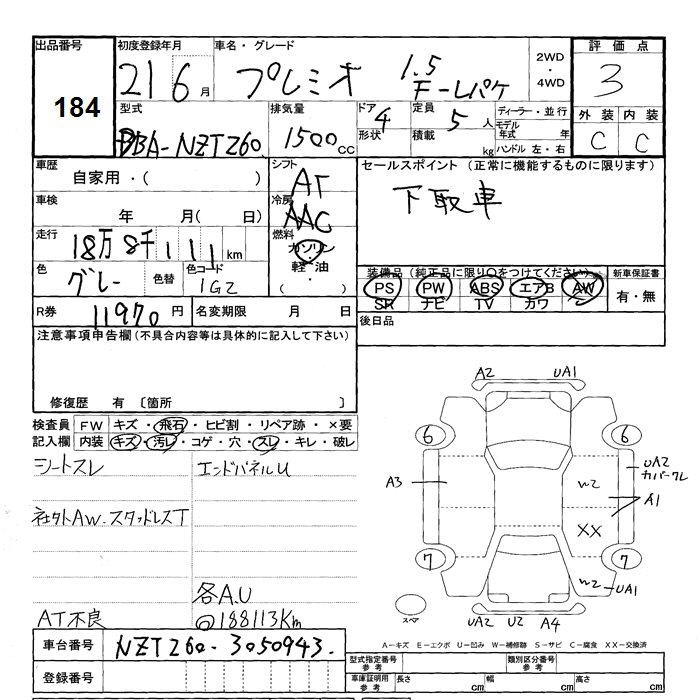 出品番号
184
初度登録年月
21 6 月
車名・グレード
プレミオ 1.5 F-Lパケ
2WD
・
4WD
評価点
3
外装 内装
C C
型式
DBA-NZT260
排気量
1500 cc
ドア 4
形状
定員 5 人
積載 kg
ディーラー・並行
モデル
年式 年
ハンドル 左・右
車歴
自家用・( )
車検
年 月( 日)
走行
18万8千111 km
色 グレー 色替
色コード 1G2
シフト
AT
冷房
AAC
燃料
ガソリン
・
軽油
・
( )
セールスポイント (正常に機能するものに限ります)
下取車
装備品 (純正品に限り○をつけてください) 新車保証書
PS PW ABS エアB AW
SR ナビ TV カワ
有・無
R券 11970 円
名変期限 月 日
後日品
注意事項申告欄(不具合内容等は具体的に記入して下さい)
修復歴 有 〔箇所 〕
検査員 FW キズ・飛石・ヒビ割・リペア跡・×要
記入欄 内装 キズ・汚レ・コゲ・穴・スレ・キレ・破レ
シートスレ
エンドパネルU
社外AW.スタッドレスT
各A.U
AT不良
◎188113Km
A2 UA1
6 6
A3
W2
UA2
カバークレ
A1
XX
7 7
W2
UA1
スペア
UA2 U2 A4
A−キズ E−エクボ U−凹み W−補修跡 S−サビ C−腐食 XX−交換済
車台番号 NZT260-3050943.
登録番号
型式指定番号
参考
類別区分番号
参考
車庫証明用
参考
長さ cm 幅 cm 高さ cm